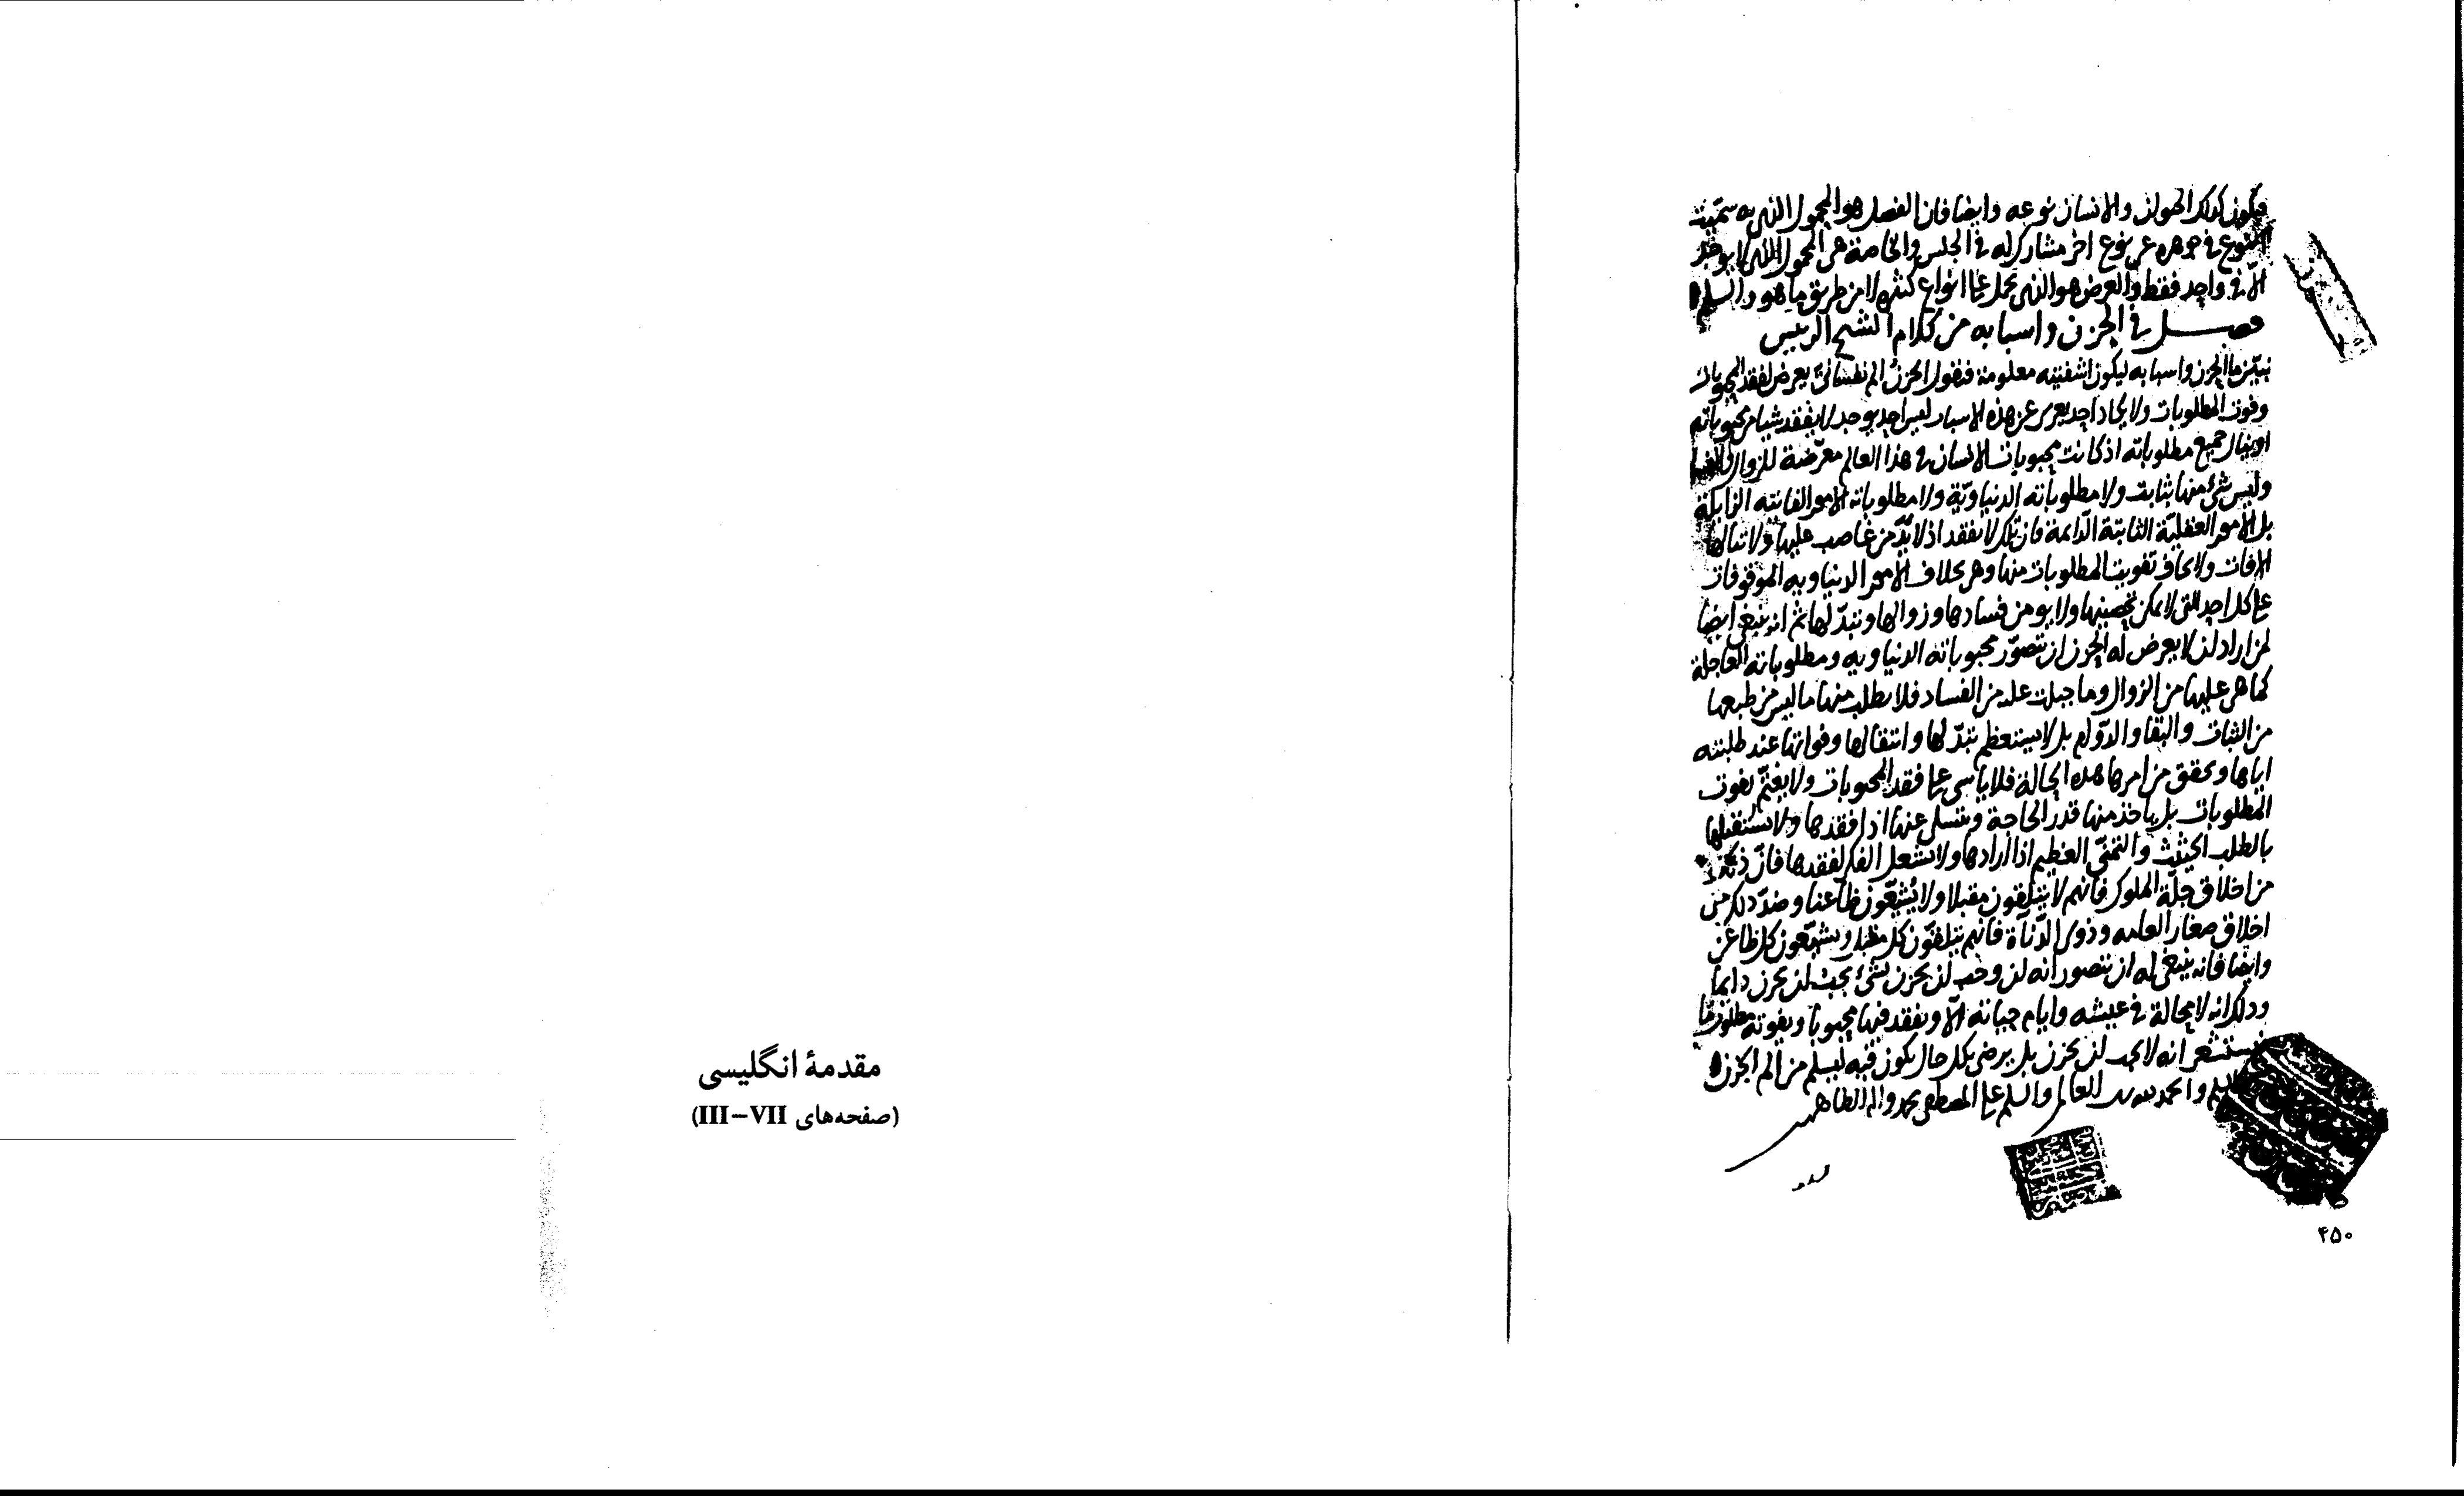 فيكون كذلك الحيوان والانسان نوعه وايضا فان الفصل هو المحمول الذى به
النوع فى جوهره عن نوع اخر مشارك له فى الجنس والخاصة هى المحمول الذى لا يوجد
الا فى واحد فقط والعرض هو الذى يحمل على انواع كثيره لا من طريق ما هو والسلم
فصل فى الحزن واسبابه من كلام الشيخ الرئيس
نبين ما الحزن واسبابه ليكون اشفيته معلومة فنقول الحزن الم نفسانى يعرض لفقد المحبوبات
وفوت المطلوبات ولا يكاد احد يعرى عن هذه الاسباب ليس احد يوجد لا يفقد شيا من محبوباته
او ينال جميع مطلوباته اذ كانت محبوبات الانسان فى هذا العالم معرضة للزوال
وليس شئ منها بثابت ولا مطلوباته الدنياوية ولا مطلوباته الامور الفانيه الزايلة
بل الامور العقلية الثابتة الدائمة فان تلك لا يفقد اذ لا بد من غاصب عليها ولا تنالها
الافات ولا يخاف تفويت المطلوبات منها وهى بخلاف الامور الدنياويه الموقوفات
على كل احد التى لا يمكن تحصينها ولا يومن فسادها وزوالها وتبدلها ثم انه ينبغى ايضا
لمن اراد لن لا يعرض له الحزن ان يتصور محبوباته الدنياويه ومطلوباته العاجلة
كما هى عليها من الزوال وما جبلت عليه من الفساد فلا يطلب منها ما ليس من طبعها
من الثبات والبقا والدوام بل لا يستعظم تبدلها وانتقالها وفواتها عند طلبته
اياها وتحقق من امرها هذه الحالة فلا ياسى على فقد المحبوبات ولا يغتم بفوت
المطلوبات بل ياخذ منها قدر الحاجة ويتسلى عنها اذا فقدها ولا يستقبلها
بالطلب الحثيث والتمنى العظيم اذا ارادها ولا يشغل الفكر لفقدها فان ذلك
من اخلاق جلة الملوك فانهم لا يتلقون مقبلا ولا يشيعون ظاعنا وضد ذلك من
اخلاق صغار العامه وذوى الدناة فانهم يتلقون كل مقبل ويشيعون كل ظاعن
وايضا فانه ينبغى له ان يتصور انه لن وجب لن يحزن لشئ يجب لن يحزن دايما
وذلك انه لا محالة فى عيشه وايام حياته الا ويفقد فيها محبوبا ويفوته مطلوب
انه لا يجب لن يحزن بل يرضى بكل حال يكون فيه ليسلم من الم الحزن
والحمد لله رب العالم والسلم على المصطفى محمد واله الطاهر
۴۵۰
مقدمهٔ انگلیسی
(صفحه‌های III–VII)